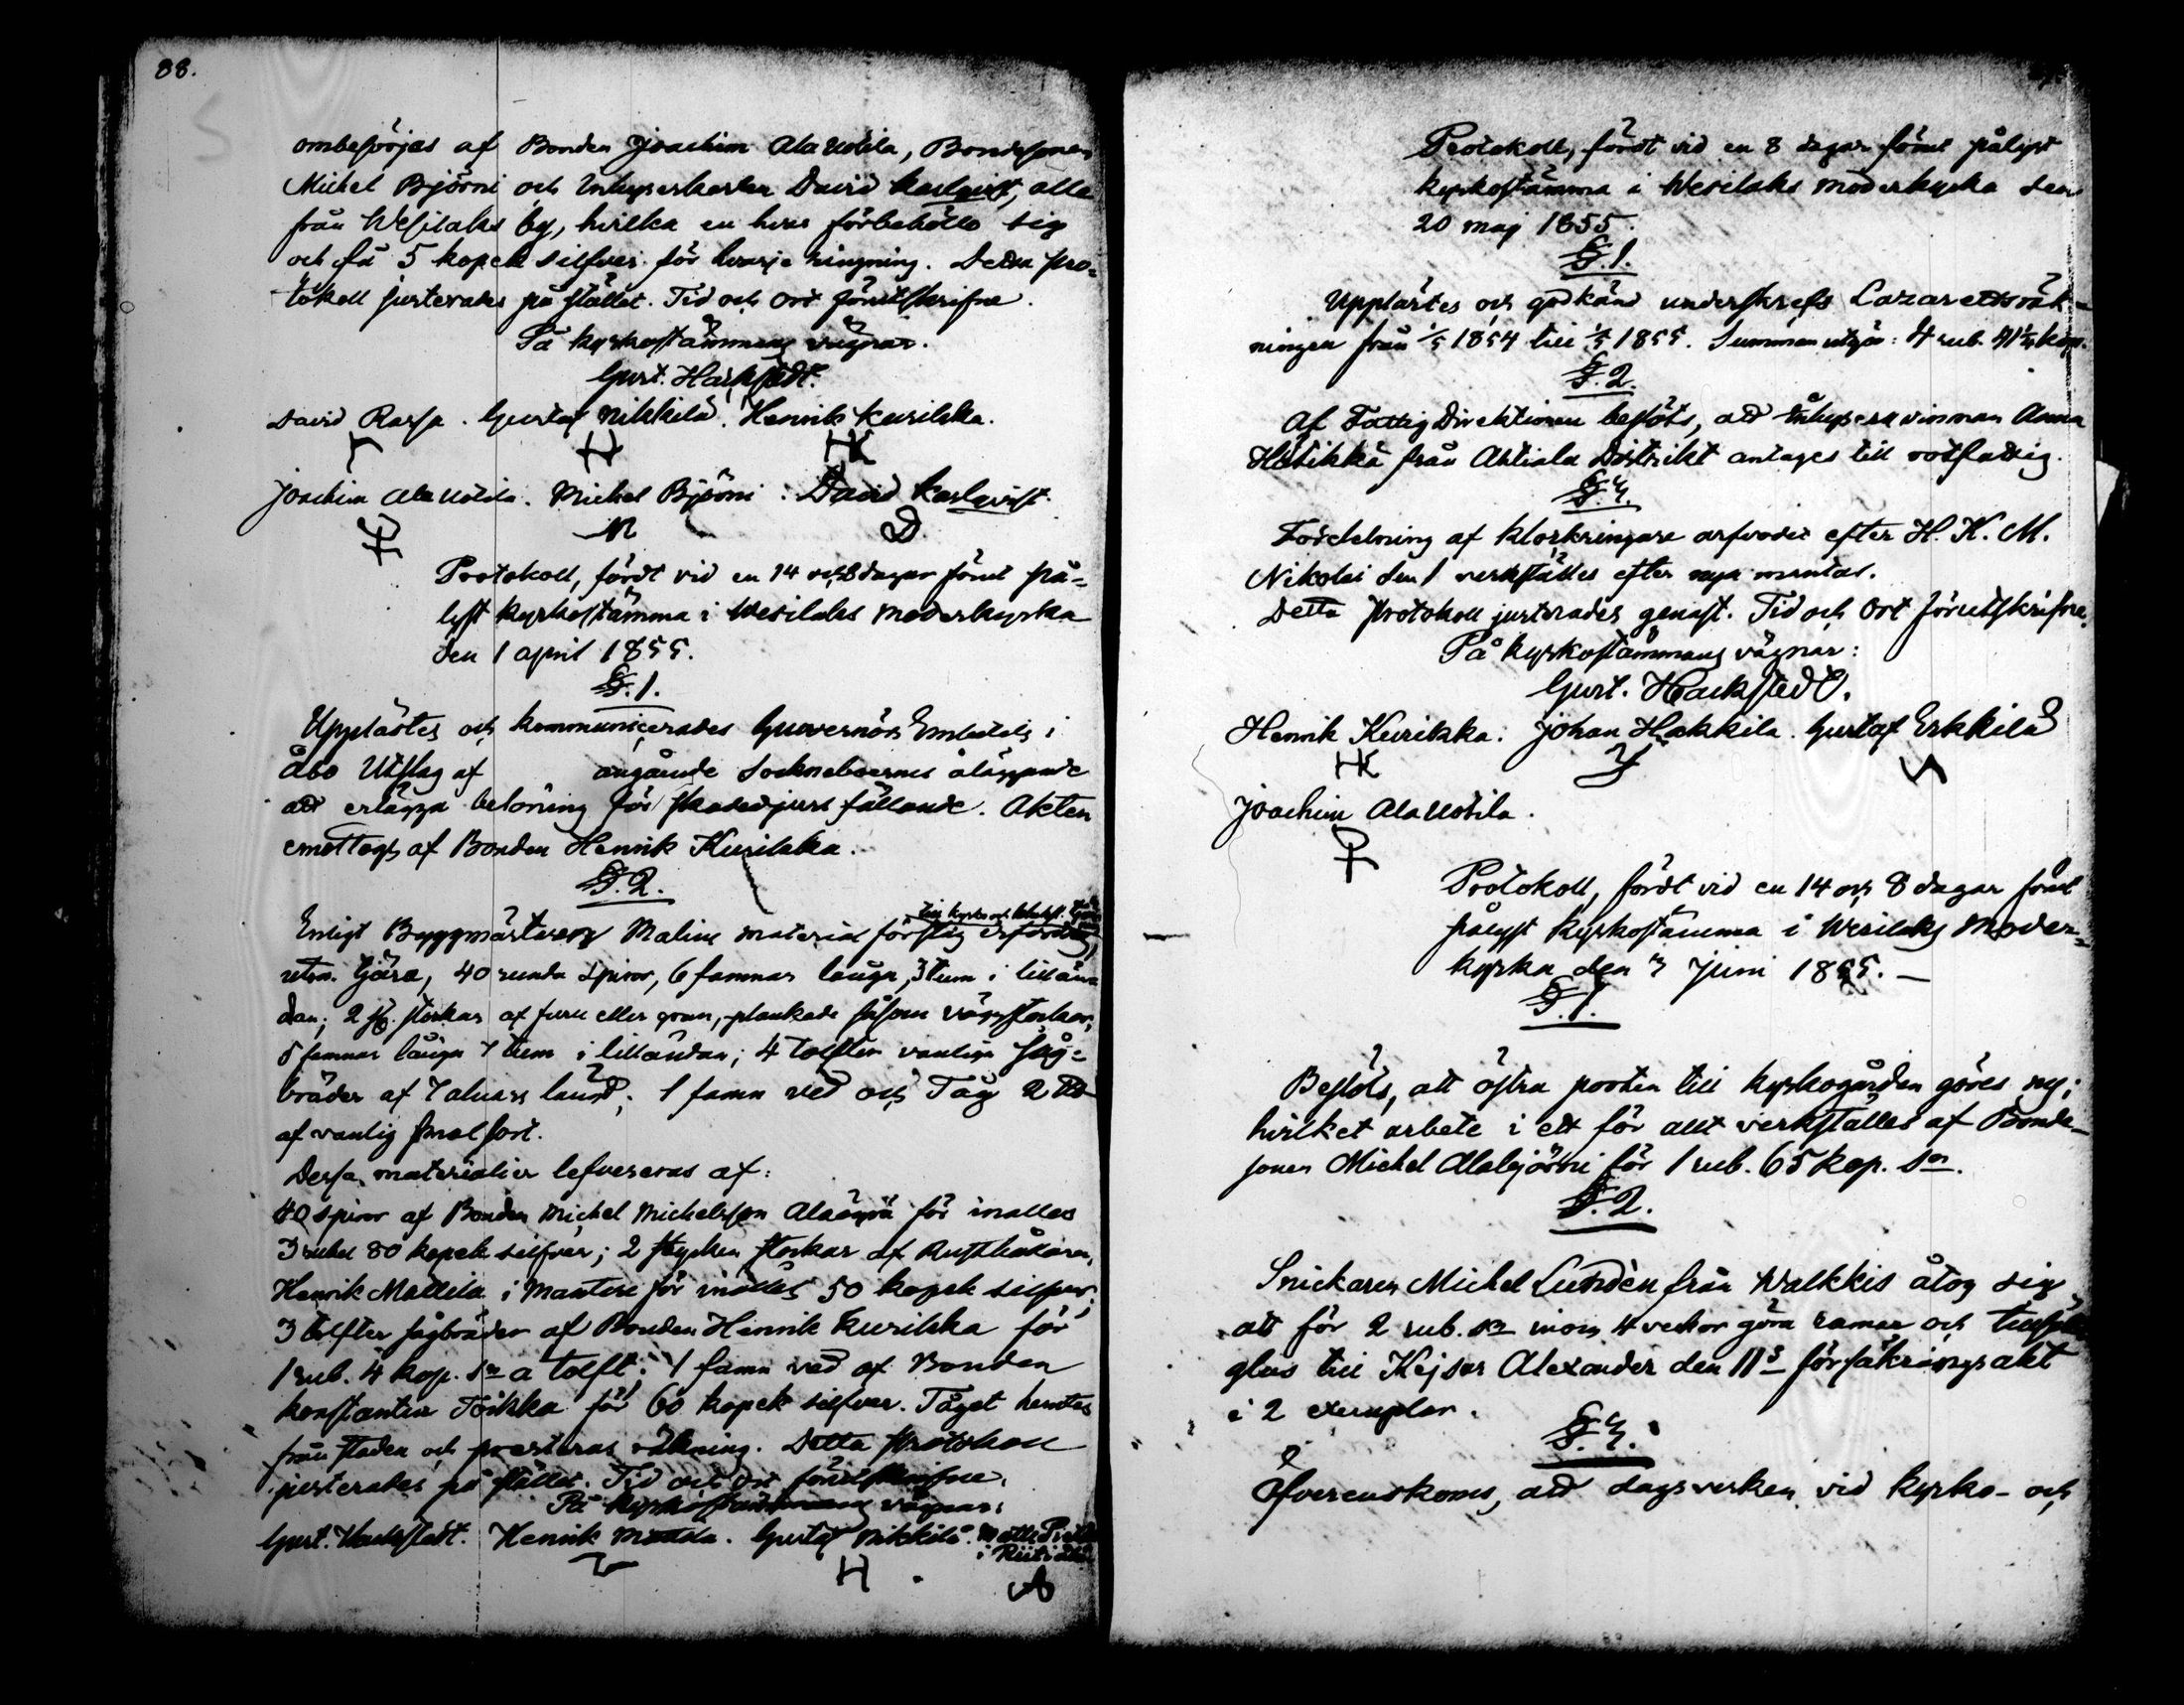 88.
ombesörjes af Bonden Joachim Ala Uotila, Bondesonen
Michel Björni och Inhyseskarlen David Karlqvist, alla
från Wesilaks by, hvilka en hvar förbehöllo sig
och få 5 kopek silfver för hvarje ringning. Detta pro-
tokoll justerades på stället. Tid och Ort förutskrifne.
På kyrkostämmans vägnar.
Gust. Hackstedt.
David Rassa. Gustaf Nikkilä. Henrik Kurikka.
HK
Joachim Ala Uotila. Michel Björni: David Karlqvist.
M D
Protokoll, fördt vid en 14 och 8 dagar förut på-
lyst kyrkostämma i Wesilaks moderkyrka
den 1 april 1855.
§.1.
Upplästes och kommunicerades Guvernörs Embetets i
Åbo Utslag af angående Sockneboernes åläggande
att erlägga belöning för skadedjurs fällande. Akten
emottogs af Bonden Henrik Kurikka.
§.2.
Enligt Byggmästaren Malins material förslag erfordras,
utom tjära, 40 runda spiror, 6 famnar långa, 3 tum i lilländ
dan; 2 st. stockar af furu eller gran, plankade såsom väggstockar,
5 famnar långa 7 tum i lilländan; 4 tolfter vanliga såg-
bräder af 7 alnars längd; 1 famn ved och Tåg 2
af vanlig smal sort.
Dessa materialier lefvereras af:
40 spiror af Bonden Michel Michelsson för inalles
3 rubel 80 kopek silfver; 2 stycken stockar af Rusthållaren
Henrik Mattila i Mantere för inalles 50 kopek silfver;
3 tolfter sågbräder af Bonden Henrik Kurikka för
1 rub. 4 kop. sr a tolft; 1 famn ved af Bonden
Konstantin för 60 kopek silfver. Tåget hemtas
från staden och räkning. Detta Protokoll
justerades på stället. Tid och Ort förutskrifne.
På kyrkostämmans vägnar:
Gust. Hackstedt. Henrik Mattila. Gustaf Nikkilä. Matts
i
H
Protokoll, fördt vid en 8 dagar förut pålyst
kyrkostämma i Wesilaks moderkyrka den
20 maj 1855.
§.1.
Upplästes och godkänd underskrefs Lazarettsräk-
ningen från 1/5 1854 till 1/5 1855. Summan utgör: 4 rub. 41½ kop.
§.2.
Af Fattig Direktionen beslöts, att Inhyses qvinnan Anna
från Ahtiala Distrikt antages till rotfattig.
§.3.
Fördelning af klockringare arfvodet efter H. K. M.
Nikolai den 1 verkställes efter nya mantal.
Detta Protokoll justerades genast. Tid och Ort förutskrifne.
På kyrkostämmans vägnar:
Gust. Hackstedt.
Henrik Kurikka. Johan Hakkila. Gustaf Erkkilä
HK
Joachim Ala Uotila.
Protokoll, fördt vid en 14 och 8 dagar förut
pålyst kyrkostämma i Wesilaks Moder-
kyrka den 3 Juni 1855.
§.1.
Beslöts, att östra porten till kyrkogården göres ny;
hvilket arbete i ett för allt verkställes af Bonde-
sonen Michel Alabjörni för 1 rub. 65 kop. sr.
§.2.
Snickaren Michel Lundèn från Walkkis åtog sig
att för 2 rub. sr inom 4 veckor göra ramar och
glas till Kejsar Alexander den IIs försäkringsakt
i 2 exemplar.
§.3.
Öfverenskoms, att dagsverken vid kyrko- och